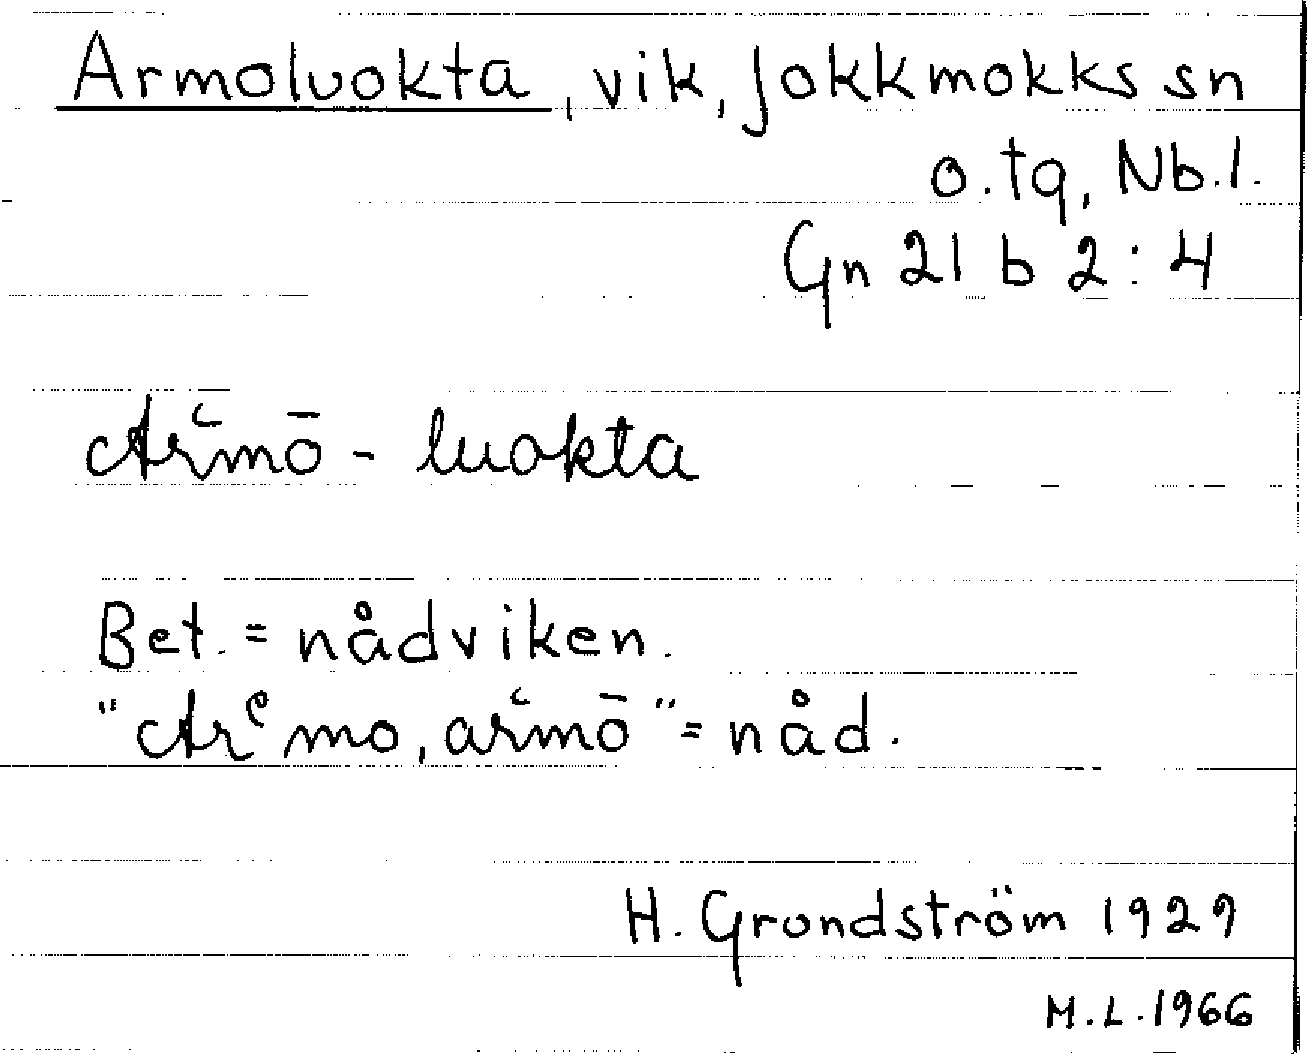 Armoluokta, vik, Jokkmokks sn
o. tg, Nb. l.
Gn 21 b 2:4
Arʿmō - luokta
Bet. = nådviken.
"Arᵉmo, arʿmō" = nåd.
H. Grondström 1929
M.L. 1966